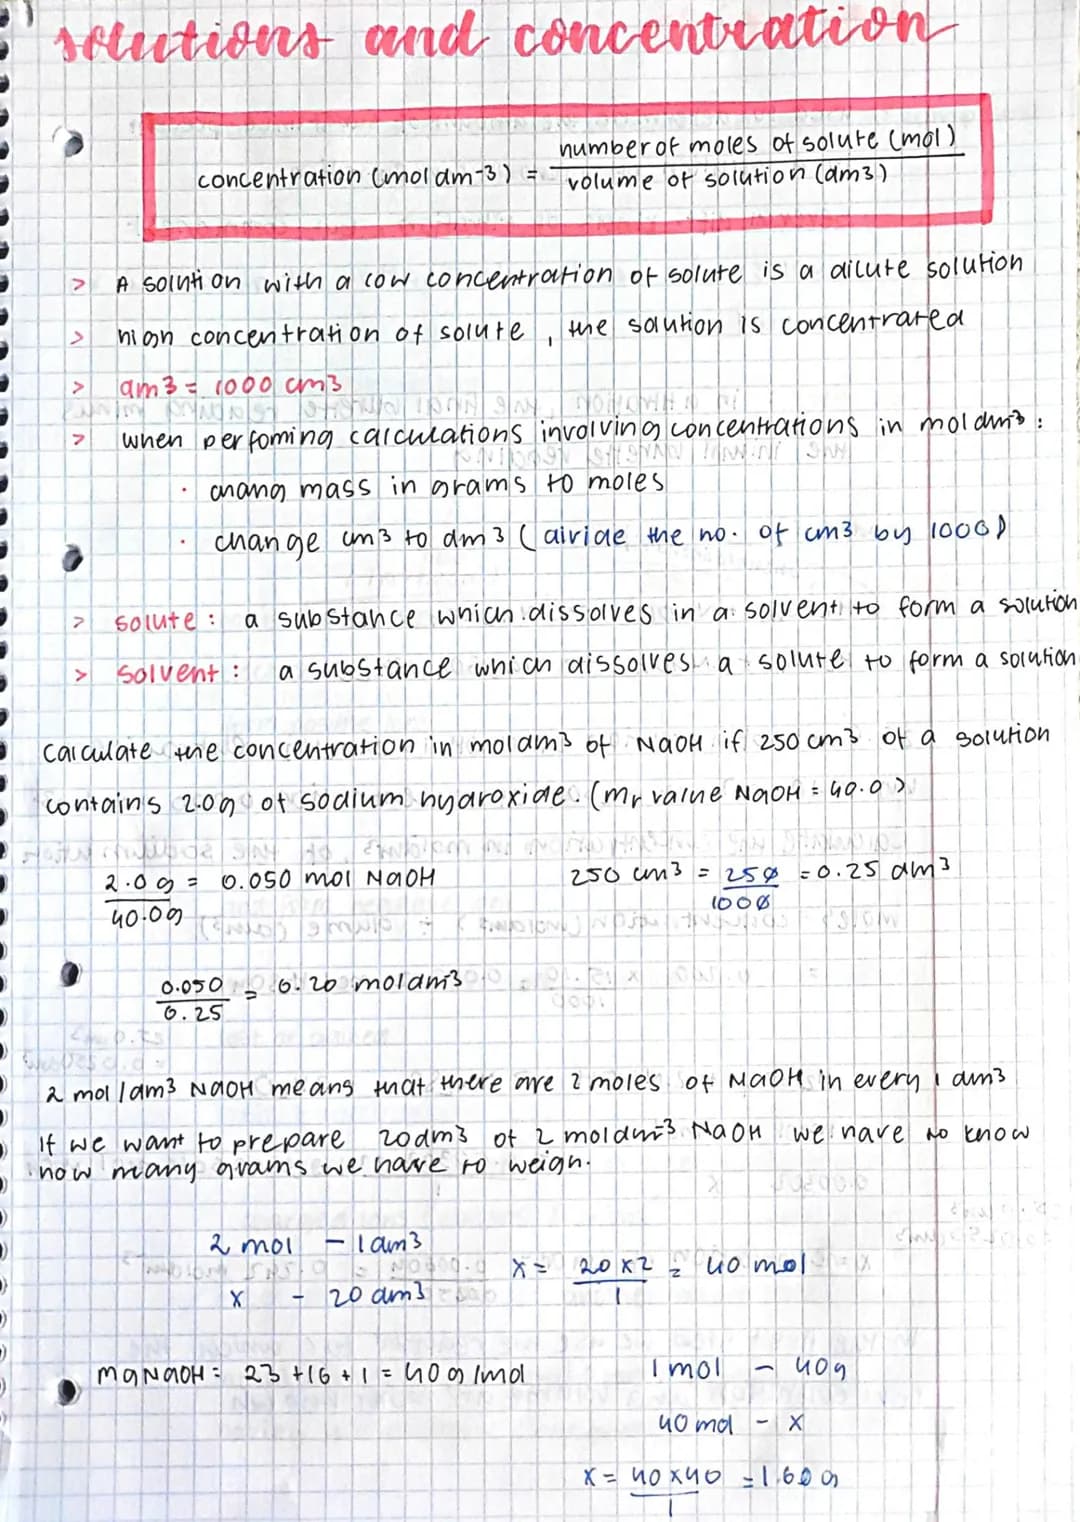 solutions and concentration
concentration (mol dm-3) = number of moles of solute (mol) / volume of solution (dm3)
> A solution with a low concentration of solute is a dilute solution
> high concentration of solute, the solution is concentrated
> dm3 = 1000 cm3
> when perfoming calculations involving concentrations in mol dm-3 :
· chang mass in grams to moles
· change cm3 to dm3 (divide the no. of cm3 by 1000)
> solute : a substance which dissolves in a solvent to form a solution
> solvent : a substance which dissolves a solute to form a solution
Calculate the concentration in moldm3 of NaOH if 250 cm3 of a solution
contains 2.0g of sodium hydroxide. (mr value NaOH = 40.0)
2.0 g / 40.0g = 0.050 mol NaOH 250 cm3 = 250 / 1000 = 0.25 dm3
0.050 / 0.25 = 0.20 moldm-3
2 mol / dm3 NaOH means that there are 2 moles of NaOH in every 1 dm3
If we want to prepare 20dm3 of 2 moldm-3 NaOH we have to know
how many grams we have to weigh.
2 mol - 1dm3
x - 20 dm3 x = 20 x 2 / 1 = 40 mol
NaOH = 23 + 16 + 1 = 40 g /mol 1 mol - 40g
40 mol - x
x = 40 x 40 / 1 = 1.60 g